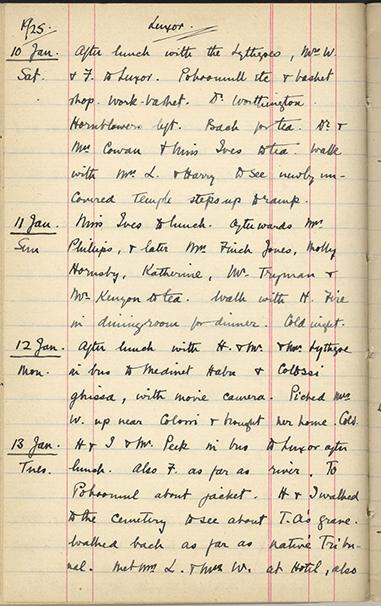 1925. Luxor.
10 Jan. After lunch with the Lythgoes, Mrs W.
Sat. & F. to Luxor. Pohoomull etc & basket
shop. Work-basket. Dr. Worthington.
Hornblowers left. Back for tea. Dr. &
Mrs Cowan & Miss Ives to tea. Walk
with Mrs L. & Harry to see newly un-
covered Temple steps up to ramp.
11 Jan. Miss Ives to lunch. Afterwards Mrs
Sun Phillips, & later Mrs Finch Jones, Molly
Hornsby, Katherine, Mr. Tryman &
Mr. Kenyon to tea. Walk with H. Fire
in diningroom for dinner. Cold night.
12 Jan. After lunch with H. & Mr. & Mrs Lythgoe
Mon. in bus to Medinet Habu & Colossi
ghissa, with movie camera. Picked Mrs
W. up near Colossi & brought her home. Cold.
13 Jan. H & I & Mr. Peck in bus to Luxor after
Tues. lunch. Also F. as far as river. To
Pohoomul about jacket. H & I walked
to the cemetery to see about T.A's grave.
Walked back as far as native Tribu-
nal. Met Mrs L. & Mrs W. at Hotel, also